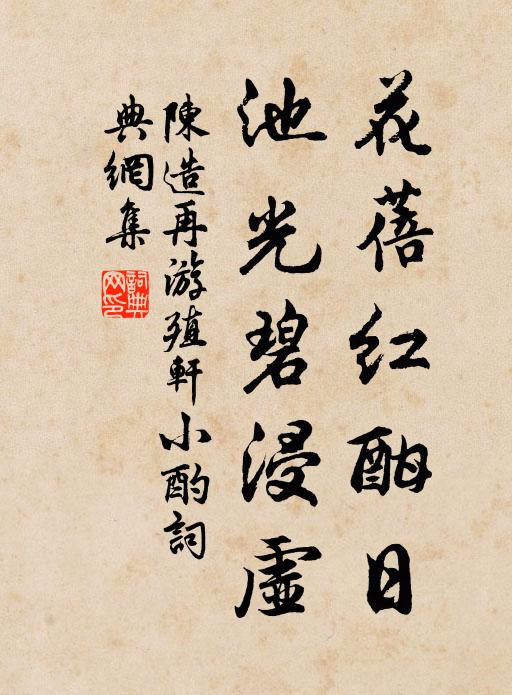 花蓓红酣日
池光碧浸虛
陳造再游殖軒小酌詞
典網集
詞典网印